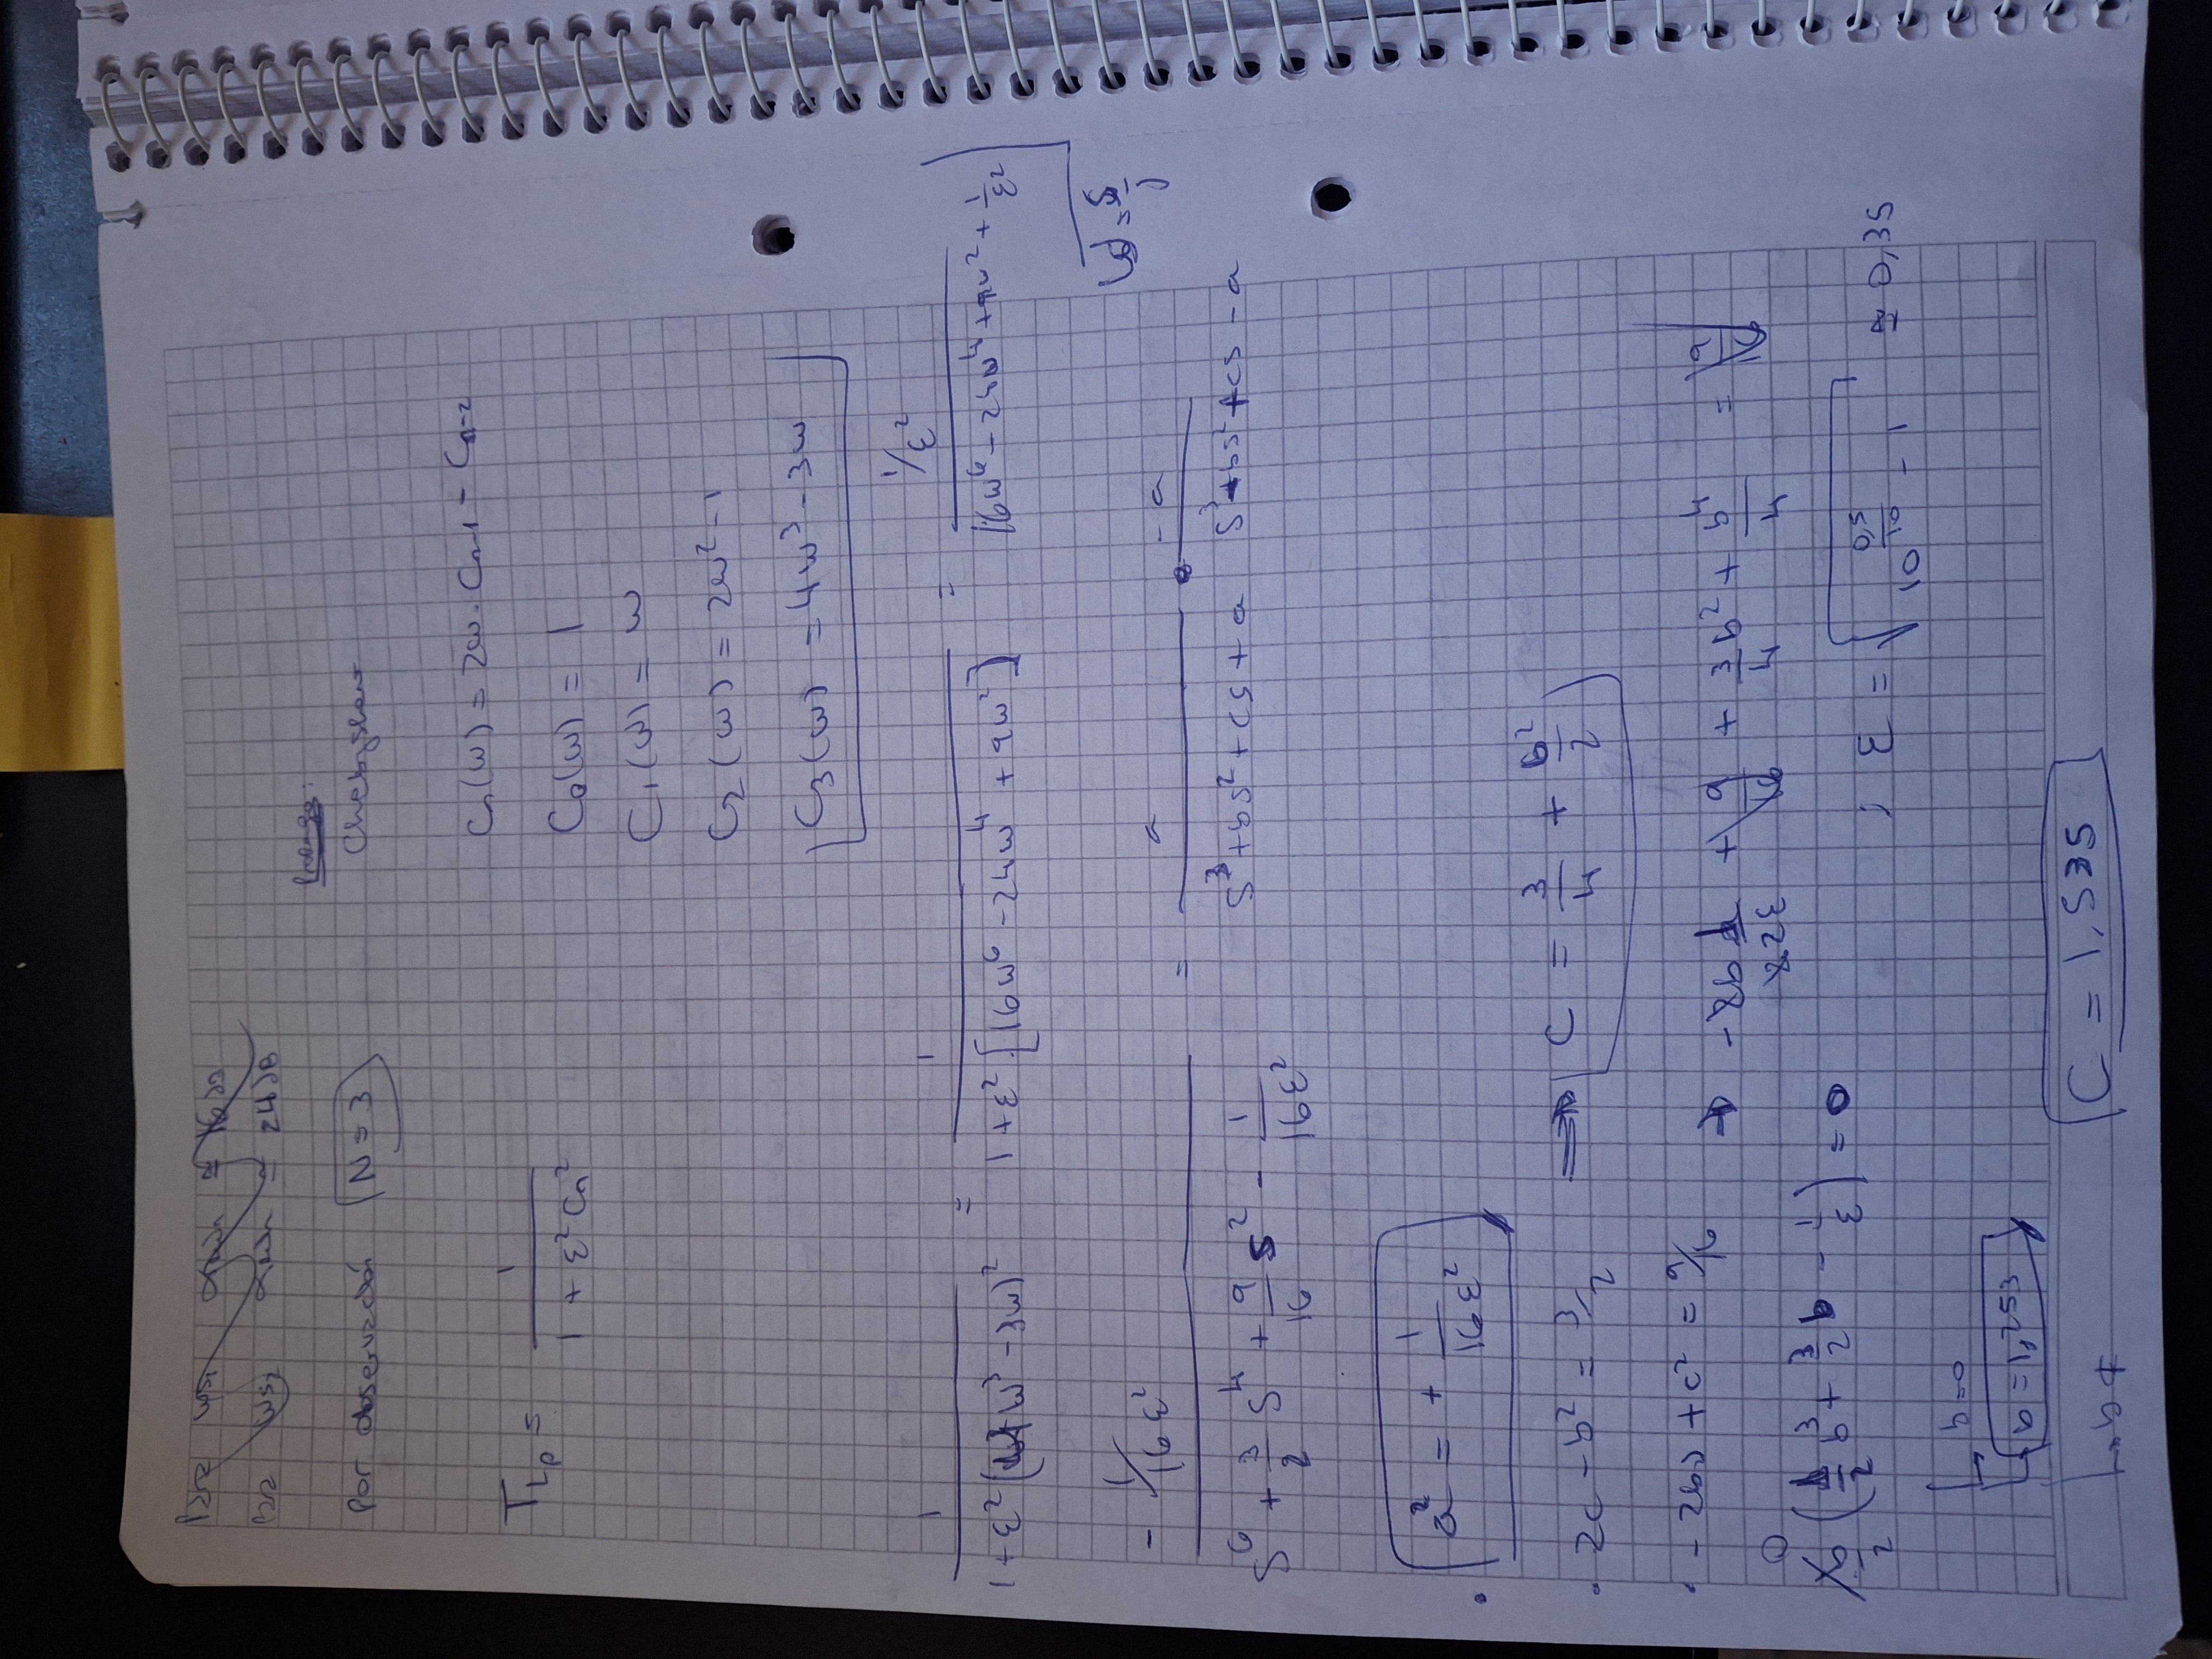 ωs1 αmin = 16dB
ωs2 αmin = 24dB
Por observación N = 3
Chebyshev
Cn(ω) = 2ω · Cn-1 - Cn-2
T_LP = 1 / (1 + ε² Cn²)
C0(ω) = 1
C1(ω) = ω
C2(ω) = 2ω² - 1
C3(ω) = 4ω³ - 3ω
1 / (1 + ε² (4ω³ - 3ω)²) = 1 / (1 + ε² [16ω⁶ - 24ω⁴ + 9ω²]) = (1/ε²) / (16ω⁶ - 24ω⁴ + 9ω² + 1/ε²)
ω = s/j
(- 1/16ε²) / (s⁶ + 3/2 s⁴ + 9/16 s² - 1/16ε²) = a / (s³ + bs² + cs + a) · -a / (s³ - bs² + cs - a)
a² = + 1/16ε²
· 2c - b² = 3/2 ⇒ c = 3/4 + b²/2
· - 2ba + c² = 9/16 → - 2b 1/ + 9/16 + 3/4 b² + b⁴/4 = 9/16
b/2 (1/2 b³ + 3/2 b - 1/ε) = 0
; ε = √(10^(0,5/10) - 1) ≅ 0,35
b = 0
b = 1,253
C = 1,535